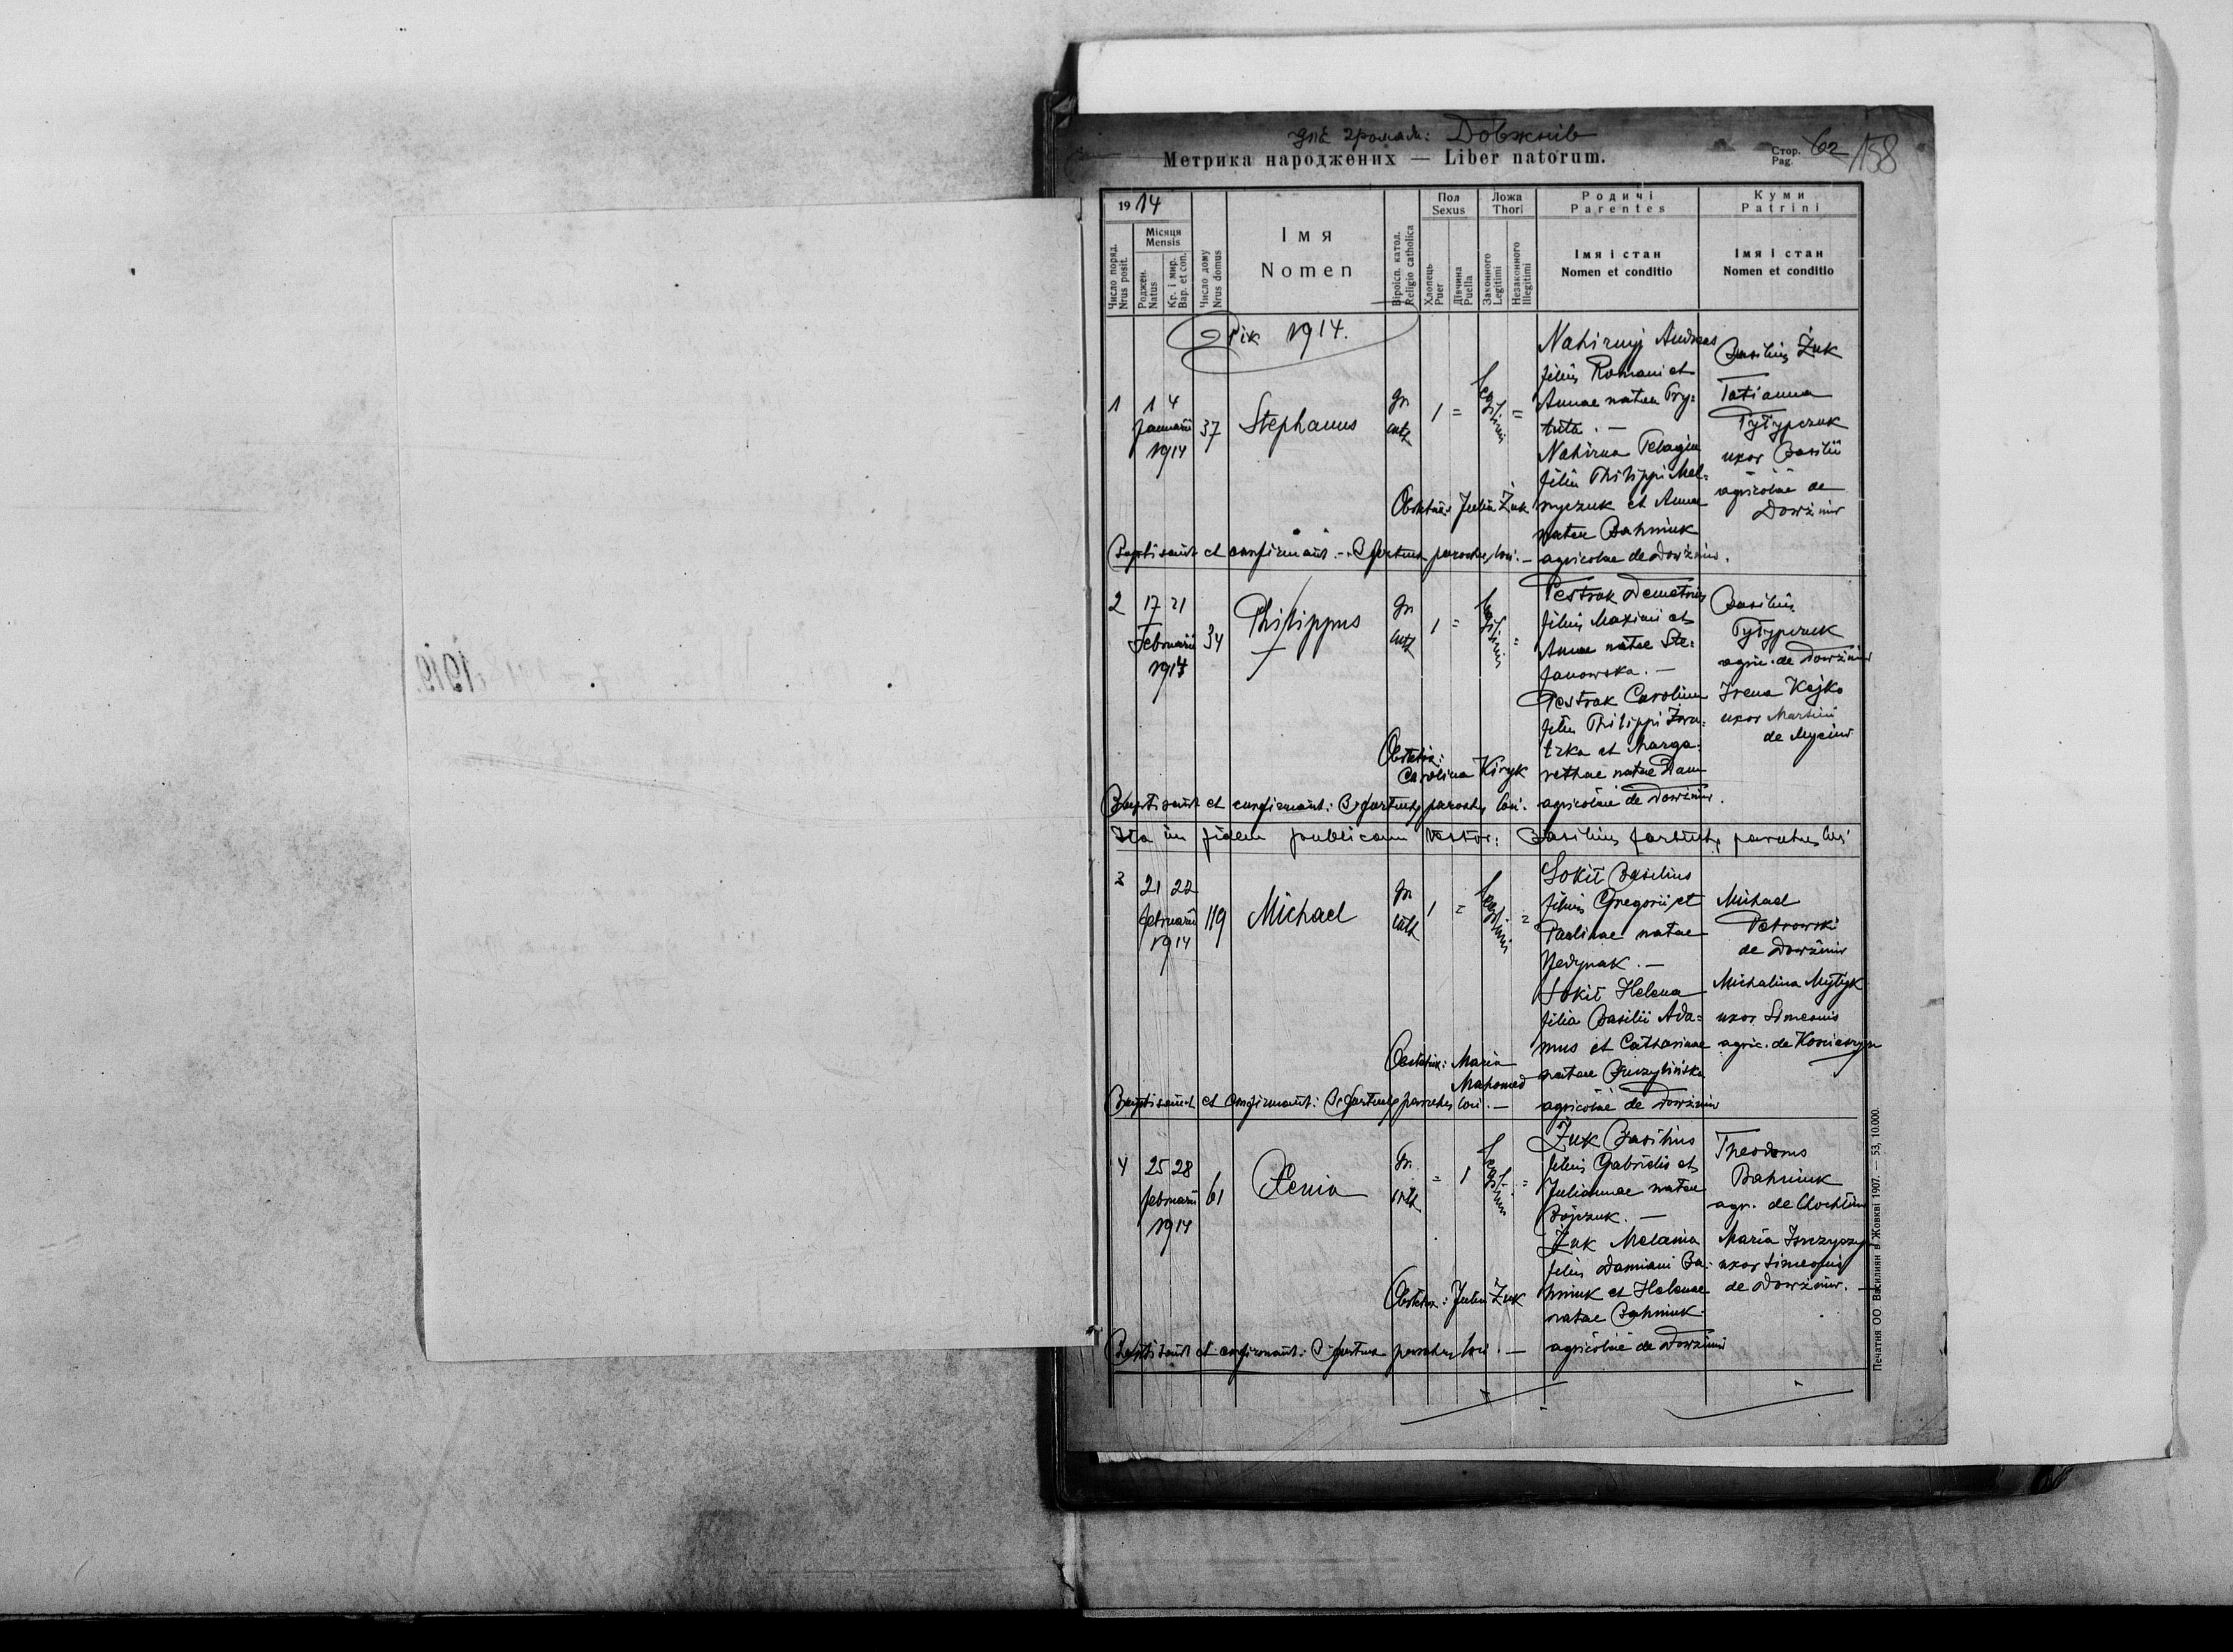 для громади: Довжнів
Метрика народжених — Liber natorum.
Стор. Pag. 62 /158
1914
Місяця Mensis
Число поряд. Nrus posit.
Роджен. Natus
Кр. і мир. Bap. et con.
Число дому Nrus domus
Імя
Nomen
Віроісп. катол. Religio catholica
Пол Sexus
Хлопець Puer
Дівчина Puella
Ложа Thori
Законного Legitimi
Незаконного Illegitimi
Родичі Parentes
Імя і стан
Nomen et conditio
Куми Patrini
Імя і стан
Nomen et conditio
Рік 1914.
1
1 4
Januarii
1914
37
Stephanus
gr.
cath
1 =
Legitimi
=
Nahirnyj Andreas
filius Romani et
Annae natae Pry-
tuta. —
Nahirna Pelagia
filia Philippi Mel-
nyczuk et Annae
natae Bahniuk
agricolae de Dowżniw.
Basilius Żuk
Tatianna
Tyłypczuk
uxor Basilii
agricolae de
Dowżniw
Obstetrix: Julia Żuk
Baptisavit et confirmavit: B. parochus loci. —
2
17 21
Februarii
1914
34
Philippus
gr.
cath
1 =
Legitimi
=
Pestrak Demetrius
filius Maximi et
Annae natae Ste-
fanowska. —
Pestrak Carolina
filia Philippi
et Marga-
rethae natae
agricolae de Dowżniw.
Basilius
Tyłypczuk
agric. de Dowżniw
Irena Kojko
uxor Martini
de Myców
Obstetrix:
Carolina Kiryk
Baptisavit et confirmavit: B. parochus loci.
Ita in fidem publicam testor: Basilius parochus loci
3
21 22
februarii
1914
119
Michael
gr.
cath
1 =
Legitimi
=
Sokił Basilius
filius Gregorii et
Paulinae natae
Nedynak. —
Sokił Helena
filia Basilii Ada-
mus et Catharinae
natae
agricolae de Dowżniw
Michael
Petrowski
de Dowżniw
Michalina Mytyk
uxor Simeonis
agric. de
Obstetrix: Maria
Mahomed
Baptisavit et confirmavit: B. parochus loci. —
4
25 28
februarii
1914
61
Xenia
gr.
cath
= 1
Legitimi
=
Żuk Basilius
filius Gabrielis et
Juliannae natae
Bojczuk. —
Żuk Melania
filia Damiani Ba-
hniuk et Helenae
natae Bahniuk
agricolae de Dowżniw
Theodorus
Bahniuk
agr. de Chochłów
Maria
uxor Simeonis
de Dowżniw. —
Obstetrix: Julia Żuk
Baptisavit et confirmavit: B. parochus loci. —
Печатня ОО. Василиян в Жовкві 1907. — 53, 10.000.